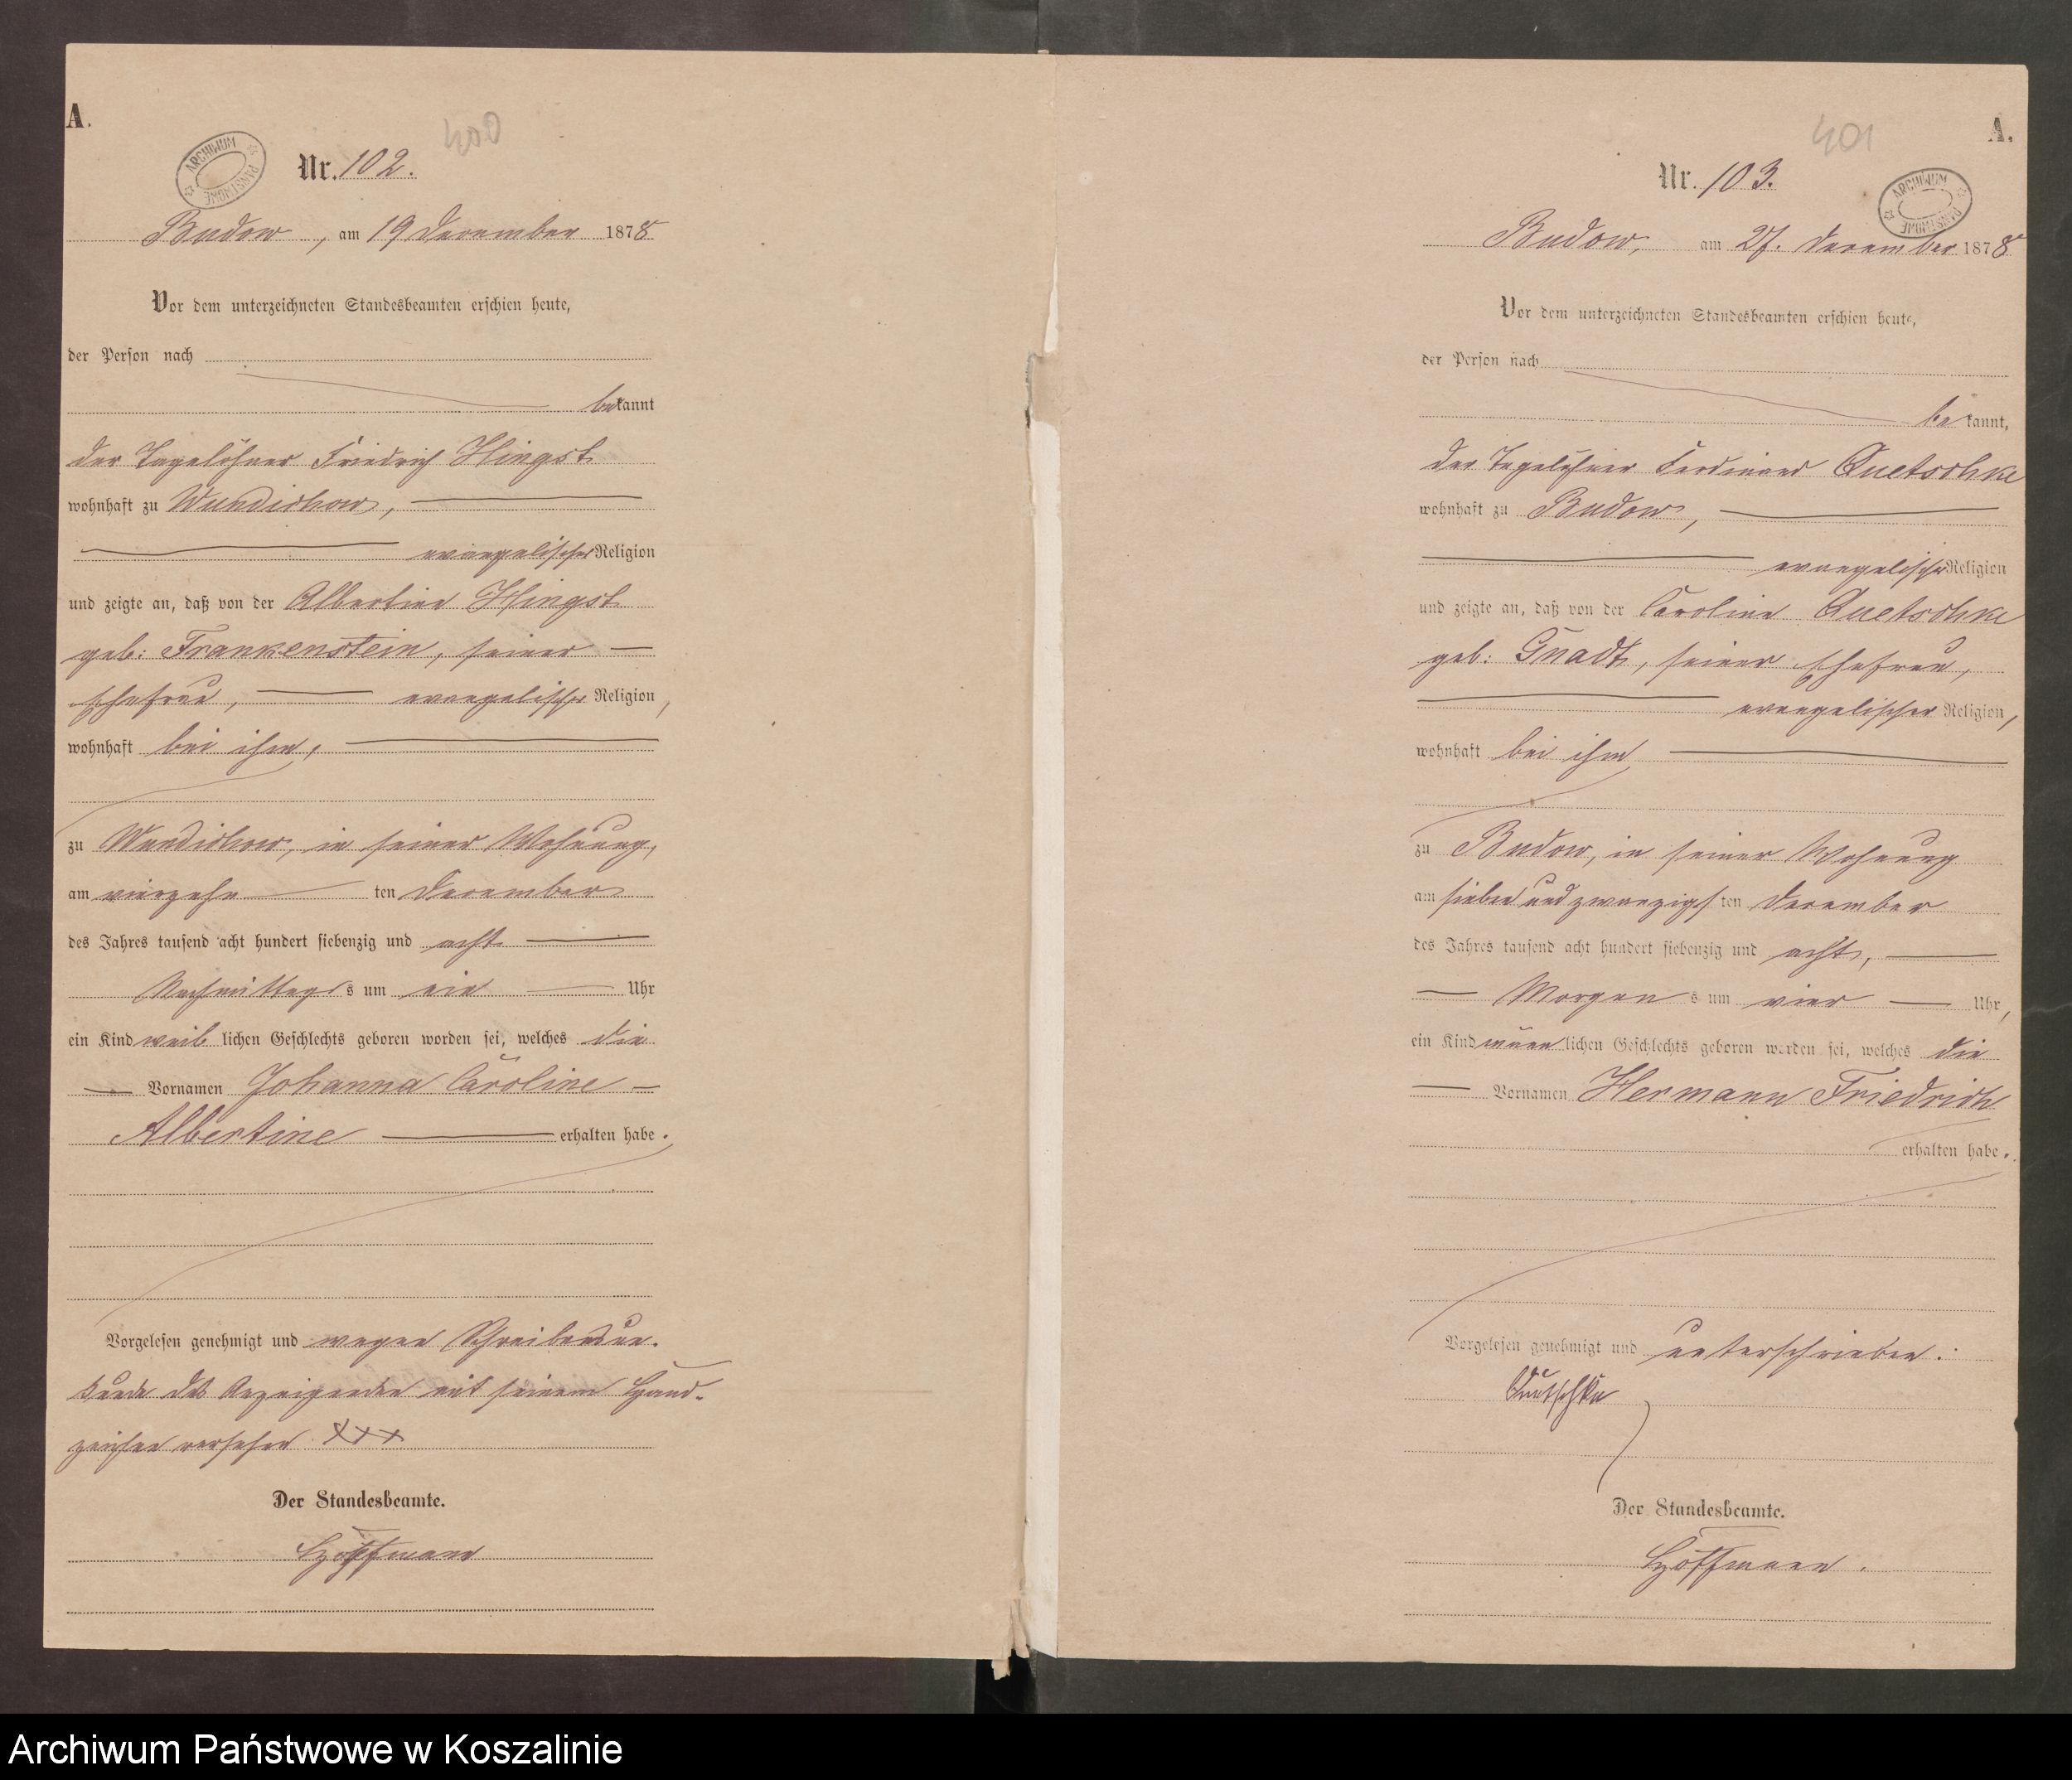 A.
400
ARCHIWUM PAŃSTWOWE
Nr. 102.
Budow, am 19 December 1878
Vor dem unterzeichneten Standesbeamten erschien heute,
der Person nach
bekannt
der Tagelöhner Friedrich Hingst
wohnhaft zu Wundichow,
evangelischer Religion
und zeigte an, daß von der Albertine Hingst
geb: Frankenstein, seiner
Ehefrau, evangelischer Religion,
wohnhaft bei ihm,
zu Wundichow, in seiner Wohnung,
am vierzehnten December
des Jahres tausend acht hundert siebenzig und acht
Nachmittags um ein Uhr
ein Kind weiblichen Geschlechts geboren worden sei, welches die
Vornamen Johanna Caroline
Albertine erhalten habe.
Vorgelesen genehmigt und wegen Schreibensun-
kunde des Anzeigenden mit seinem Hand-
zeichen versehen XXX
Der Standesbeamte.
Hoffmann
A.
401
Nr. 103.
ARCHIWUM PAŃSTWOWE
Budow, am 27. December 1878
Vor dem unterzeichneten Standesbeamten erschien heute,
der Person nach
bekannt,
der Tagelöhner Ferdinand Quetschke
wohnhaft zu Budow,
evangelischer Religion
und zeigte an, daß von der Caroline Quetschke
geb: Gnadt, seiner Ehefrau,
evangelischer Religion,
wohnhaft bei ihm
zu Budow, in seiner Wohnung
am sieben und zwanzigsten December
des Jahres tausend acht hundert siebenzig und acht,
Morgens um vier Uhr,
ein Kind männlichen Geschlechts geboren worden sei, welches die
Vornamen Hermann Friedrich
erhalten habe.
Vorgelesen genehmigt und unterschrieben:
Quetschke
Der Standesbeamte.
Hoffmann.
Archiwum Państwowe w Koszalinie